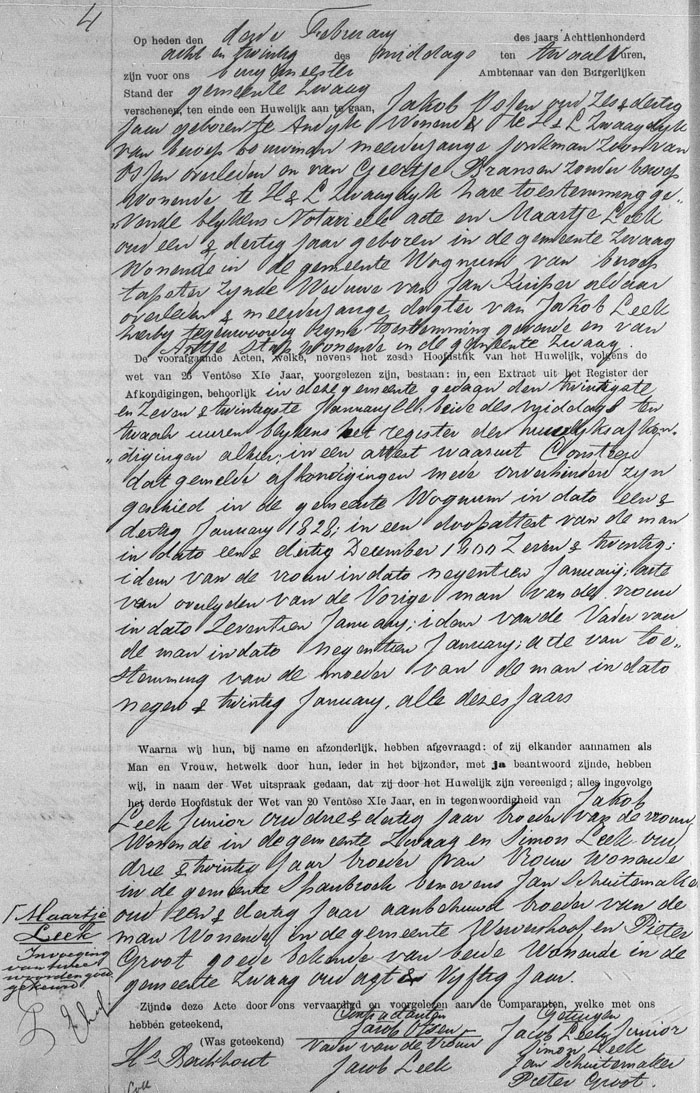 4
Op heden den derde February des jaars Achttienhonderd
acht en twintig des middags ten twaalf uren,
zijn voor ons burgemeester Ambtenaar van den Burgerlijken
Stand der gemeente Zwaag
verschenen, ten einde een Huwelijk aan te gaan, Jakob Ossen oud Zes & dertig
Jaar geboren te Andyk Wonende te H & L Zwaagdyk
van beroep bouwman meerderjange jonkman Zoon van
Ossen overleden en van Geertje Bransen Zonder beroep
Wonende te H & L Zwaagdyk hare toestemming ge-
"vende blykens Notarielle acte en Maartje Leek
oud een & dertig Jaar geboren in de gemeente Zwaag
Wonende in de gemeente Wognum van beroep
tapster Zynde Weduwe van Jan Kuiper aldaar
overleden & meerderjange dogter van Jakob Leek
hierby tegenwoordig Zyne toestemming gevende en van
Antje Stap Wonende in de gemeente Zwaag.
De voorafgaande Acten, welke, nevens het zesde Hoofdstuk van het Huwelijk, volgens de
wet van 25 Ventôse XIe Jaar, voorgelezen zijn, bestaan: in een Extract uit het Register der
Afkondigingen, behoorlijk in deze gemeente gedaan den twintigste
en Zeven & twintigste January ll. beide des middags ten
twaalf uuren blykens het register der huwelyksafkon-
"digingen alhier; in een attest waaruit Consteer
dat gemelde afkondigingen mede onverhinderd zyn
geschied in de gemeente Wognum in dato een &
dertig January 1828; in een doopattest van de man
in dato een & dertig December 1800 Zeven & twintig;
idem van de vrouw in dato negentien January; acte
van overlyden van de Vorige man van de vrouw
in dato Zeventien January; idem van de Vader van
de man in dato negentien January; acte van toe-
stemming van de moeder van de man in dato
negen & twintig January, alle dezes Jaars
Waarna wij hun, bij name en afzonderlijk, hebben afgevraagd: of zij elkander aannamen als
Man en Vrouw, hetwelk door hun, ieder in het bijzonder, met ja beantwoord zijnde, hebben
wij, in naam der Wet uitspraak gedaan, dat zij door het Huwelijk zijn vereenigd; alles ingevolge
het derde Hoofdstuk der Wet van 20 Ventôse XIe Jaar, en in tegenwoordigheid van Jakob
Leek Junior oud drie & dertig Jaar broeder van de vrouw
Wonende in de gemeente Zwaag en Simon Leek oud
drie & twintig Jaar broeder van Vrouw Wonende
in de gemeente Spanbroek benevens Jan Schuitemaker
oud een & dertig Jaar aanbehuwd broeder van de
man Wonende in de gemeente Wervershoof en Pieter
Groot goede bekende van beide Wonende in de
gemeente Zwaag oud agt & Vyftig Jaar.
Maartje
Leek
Invoeging
van twee
woorden goed
gekeurd
Zijnde deze Acte door ons vervaardigd en voorgelezen aan de Comparanten, welke met ons
hebben geteekend,
Comparanten Getuigen
Jacob Ossen Jacob Leek Junior
(Was geteekend) Vader van de Vrouw Simon Leek
Hs Bockhout Jacob Leek Jan Schuitemaker
Pieter Groot.